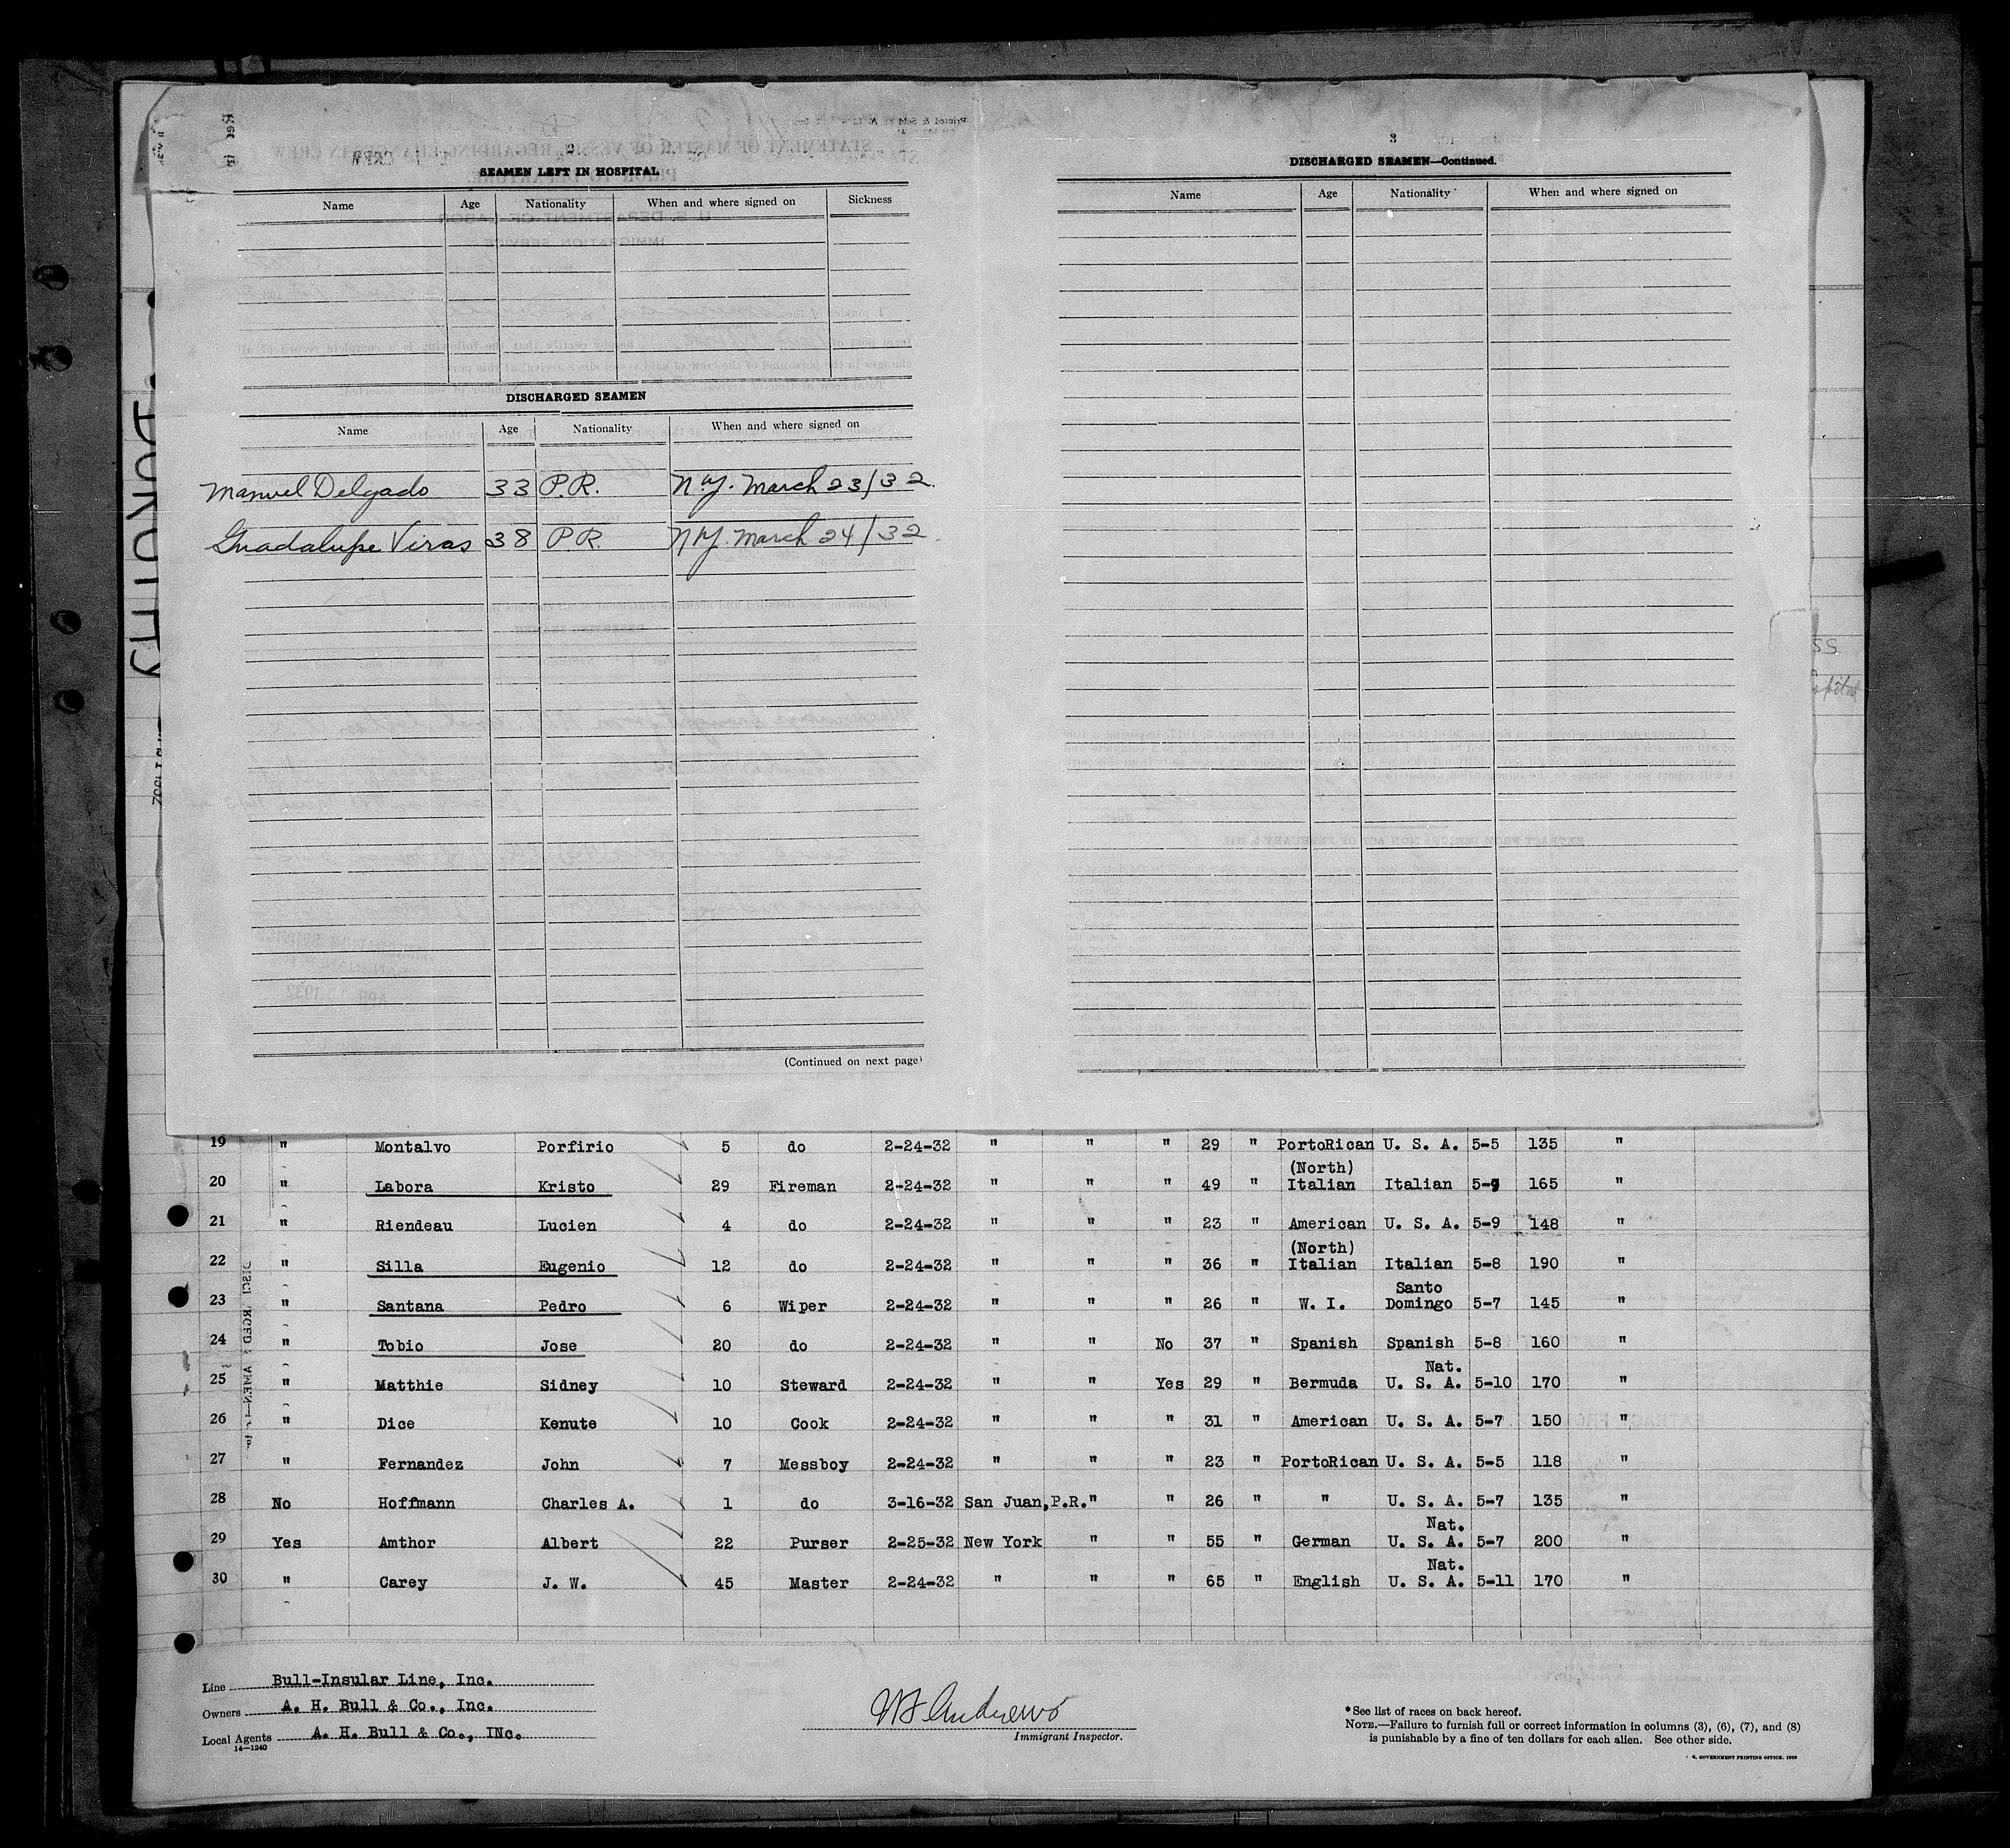 2
SEAMEN LEFT IN HOSPITAL
Name Age Nationality When and where signed on Sickness
DISCHARGED SEAMEN
Name Age Nationality When and where signed on
Manuel Delgado 33 P.R. N.Y. March 23/32.
Guadalupe Viras 38 P.R. N.Y. March 24/32.
(Continued on next page)
3
DISCHARGED SEAMEN—Continued.
Name Age Nationality When and where signed on
19 " Montalvo Porfirio 5 do 2-24-32 " " " 29 " PortoRican U. S. A. 5-5 135 "
(North)
20 " Labora Kristo 29 Fireman 2-24-32 " " " 49 " Italian Italian 5-9 165 "
21 " Riendeau Lucien 4 do 2-24-32 " " " 23 " American U. S. A. 5-9 148 "
(North)
22 " Silla Eugenio 12 do 2-24-32 " " " 36 " Italian Italian 5-8 190 "
Santo
23 " Santana Pedro 6 Wiper 2-24-32 " " " 26 " W. I. Domingo 5-7 145 "
24 " Tobio Jose 20 do 2-24-32 " " No 37 " Spanish Spanish 5-8 160 "
Nat.
25 " Matthie Sidney 10 Steward 2-24-32 " " Yes 29 " Bermuda U. S. A. 5-10 170 "
26 " Dice Kenute 10 Cook 2-24-32 " " " 31 " American U. S. A. 5-7 150 "
27 " Fernandez John 7 Messboy 2-24-32 " " " 23 " PortoRican U. S. A. 5-5 118 "
28 No Hoffmann Charles A. 1 do 3-16-32 San Juan, P.R. " " 26 " " U. S. A. 5-7 135 "
Nat.
29 Yes Amthor Albert 22 Purser 2-25-32 New York " " 55 " German U. S. A. 5-7 200 "
Nat.
30 " Carey J. W. 45 Master 2-24-32 " " " 65 " English U. S. A. 5-11 170 "
Line Bull-Insular Line, Inc.
Owners A. H. Bull & Co., Inc.
Local Agents A. H. Bull & Co., INc.
14—1240
Andrews
Immigrant Inspector.
*See list of races on back hereof.
NOTE.—Failure to furnish full or correct information in columns (3), (6), (7), and (8)
is punishable by a fine of ten dollars for each alien. See other side.
GOVERNMENT PRINTING OFFICE